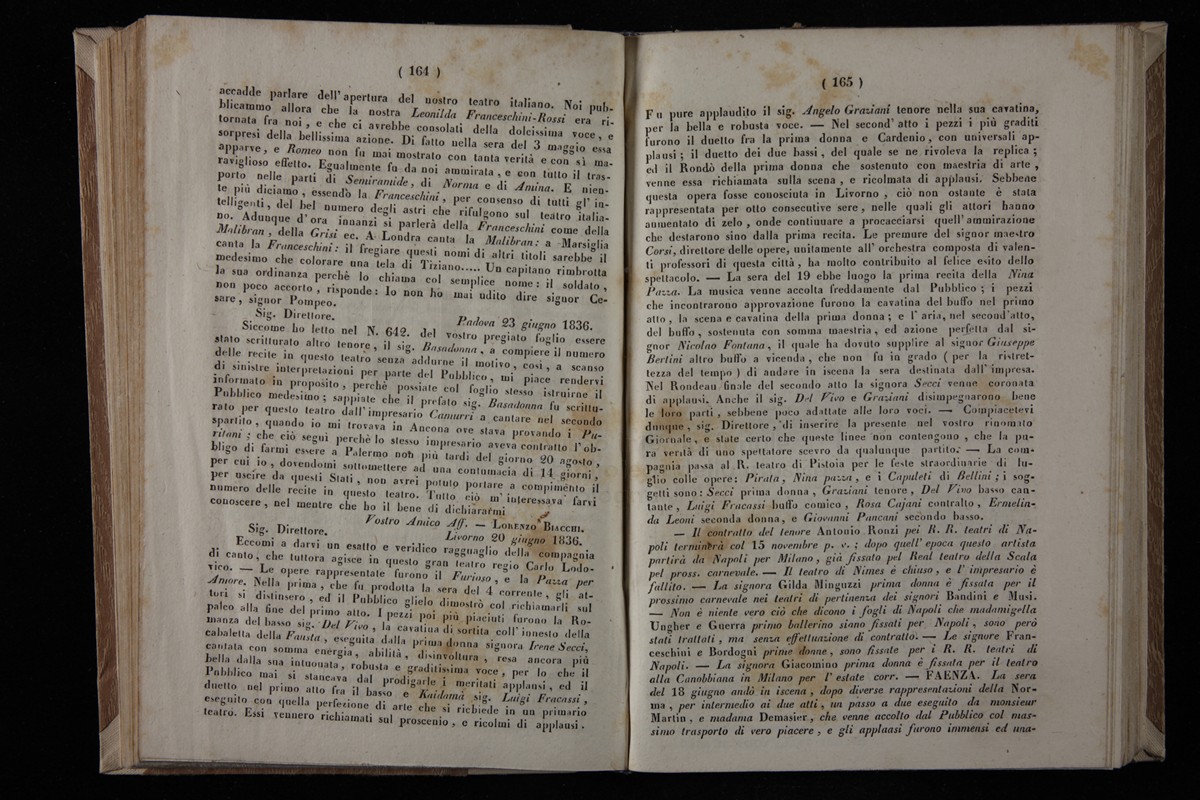 ( 164 )
accadde parlare dell' apertura del nostro teatro italiano. Noi pub-
blicammo allora che la nostra Leonilda Franceschini-Rossi era ri-
tornata fra noi, e che ci avrebbe consolati della dolcissima voce, e
sorpresi della bellissima azione. Di fatto nella sera del 3 maggio essa
apparve, e Romeo non fu mai mostrato con tanta verità e con sì ma-
raviglioso effetto. Egualmente fu da noi ammirata, e con tutto il tras-
porto nelle parti di Semiramide, di Norma e di Amina. E nien-
te più diciamo, essendo la Franceschini, per consenso di tutti gl' in-
telligenti, del bel numero degli astri che rifulgono sul teatro italia-
no. Adunque d' ora innanzi si parlerà della Franceschini come della
Malibran, della Grisi ec. A Londra canta la Malibran: a Marsiglia
canta la Franceschini: il fregiare questi nomi di altri titoli sarebbe il
medesimo che colorare una tela di Tiziano..... Un capitano rimbrotta
la sua ordinanza perchè lo chiama col semplice nome: il soldato,
non poco accorto, risponde: Io non ho mai udito dire signor Ce-
sare, signor Pompeo.
Sig. Direttore. Padova 23 giugno 1836.
Siccome ho letto nel N. 642. del vostro pregiato foglio essere
stato scritturato altro tenore, il sig. Basadonna, a compiere il numero
delle recite in questo teatro senza addurne il motivo, così, a scanso
di sinistre interpretazioni per parte del Pubblico, mi piace rendervi
informato in proposito, perchè possiate col foglio stesso istruirne il
Pubblico medesimo; sappiate che il prefato sig. Basadonna fu scrittu-
rato per questo teatro dall' impresario Camurri a cantare nel secondo
spartito, quando io mi trovava in Ancona ove stava provando i Pu-
ritani; che ciò seguì perchè lo stesso impresario aveva contratto l' ob-
bligo di farmi essere a Palermo non più tardi del giorno 20 agosto,
per cui io, dovendomi sottomettere ad una contumacia di 14 giorni,
per uscire da questi Stati, non avrei potuto portare a compimento il
numero delle recite in questo teatro. Tutto ciò m' interessava farvi
conoscere, nel mentre che ho il bene di dichiararmi
Vostro Amico Aff. — Lorenzo Biacchi.
Sig. Direttore. Livorno 20 giugno 1836.
Eccomi a darvi un esatto e veridico ragguaglio della compagnia
di canto, che tuttora agisce in questo gran teatro regio Carlo Lodo-
vico. — Le opere rappresentate furono il Furioso, e la Pazza per
Amore. Nella prima, che fu prodotta la sera del 4 corrente, gli at-
tori si distinsero, ed il Pubblico glielo dimostrò col richiamarli sul
palco alla fine del primo atto. I pezzi poi più piaciuti furono la Ro-
manza del basso sig. Del Vivo, la cavatina di sortita coll' innesto della
cabaletta della Fausta, eseguita dalla prima donna signora Irene Secci,
cantata con somma energia, abilità, disinvoltura, resa ancora più
bella dalla sua intuonata, robusta e graditissima voce, per lo che il
Pubblico mai si stancava dal prodigarle i meritati applausi, ed il
duetto nel primo atto fra il basso e Kaidamà sig. Luigi Fracassi,
eseguito con quella perfezione di arte che si richiede in un primario
teatro. Essi vennero richiamati sul proscenio, e ricolmi di applausi.
( 165 )
Fu pure applaudito il sig. Angelo Graziani tenore nella sua cavatina,
per la bella e robusta voce. — Nel second' atto i pezzi i più graditi
furono il duetto fra la prima donna e Cardenio, con universali ap-
plausi; il duetto dei due bassi, del quale se ne rivoleva la replica;
ed il Rondò della prima donna che sostenuto con maestria di arte,
venne essa richiamata sulla scena, e ricolmata di applausi. Sebbene
questa opera fosse conosciuta in Livorno, ciò non ostante è stata
rappresentata per otto consecutive sere, nelle quali gli attori hanno
aumentato di zelo, onde continuare a procacciarsi quell' ammirazione
che destarono sino dalla prima recita. Le premure del signor maestro
Corsi, direttore delle opere, unitamente all' orchestra composta di valen-
ti professori di questa città, ha molto contribuito al felice esito dello
spettacolo. — La sera del 19 ebbe luogo la prima recita della Nina
Pazza. La musica venne accolta freddamente dal Pubblico; i pezzi
che incontrarono approvazione furono la cavatina del buffo nel primo
atto, la scena e cavatina della prima donna; e l' aria, nel second' atto,
del buffo, sostenuta con somma maestria, ed azione perfetta dal si-
gnor Nicolao Fontana, il quale ha dovuto supplire al signor Giuseppe
Bertini altro buffo a vicenda, che non fu in grado ( per la ristret-
tezza del tempo ) di andare in iscena la sera destinata dall' impresa.
Nel Rondeau finale del secondo atto la signora Secci venne coronata
di applausi. Anche il sig. Del Vivo e Graziani disimpegnarono bene
le loro parti, sebbene poco adattate alle loro voci. — Compiacetevi
dunque, sig. Direttore, di inserire la presente nel vostro rinomato
Giornale, e state certo che queste linee non contengono, che la pu-
ra verità di uno spettatore scevro da qualunque partito. — La com-
pagnia passa al R. teatro di Pistoia per le feste straordinarie di lu-
glio colle opere: Pirata, Nina pazza, e i Capuleti di Bellini; i sog-
getti sono: Secci prima donna, Graziani tenore, Del Vivo basso can-
tante, Luigi Fracassi buffo comico, Rosa Cajani contralto, Ermelin-
da Leoni seconda donna, e Giovanni Pancani secondo basso.
— Il contratto del tenore Antonio Ronzi pei R. R. teatri di Na-
poli terminerà col 15 novembre p. v.; dopo quell' epoca questo artista
partirà da Napoli per Milano, già fissato pel Real teatro della Scala
pel pross. carnevale. — Il teatro di Nimes è chiuso, e l' impresario è
fallito. — La signora Gilda Minguzzi prima donna è fissata per il
prossimo carnevale nei teatri di pertinenza dei signori Bandini e Musi.
— Non è niente vero ciò che dicono i fogli di Napoli che madamigella
Ungher e Guerra primo ballerino siano fissati per Napoli, sono però
stati trattati, ma senza effettuazione di contratto. — Le signore Fran-
ceschini e Bordogni prime donne, sono fissate per i R. R. teatri di
Napoli. — La signora Giacomino prima donna è fissata per il teatro
alla Canobbiana in Milano per l' estate corr. — FAENZA. La sera
del 18 giugno andò in iscena, dopo diverse rappresentazioni della Nor-
ma, per intermedio ai due atti, un passo a due eseguito da monsieur
Martin, e madama Demasier, che venne accolto dal Pubblico col mas-
simo trasporto di vero piacere, e gli applaasi furono immensi ed una-